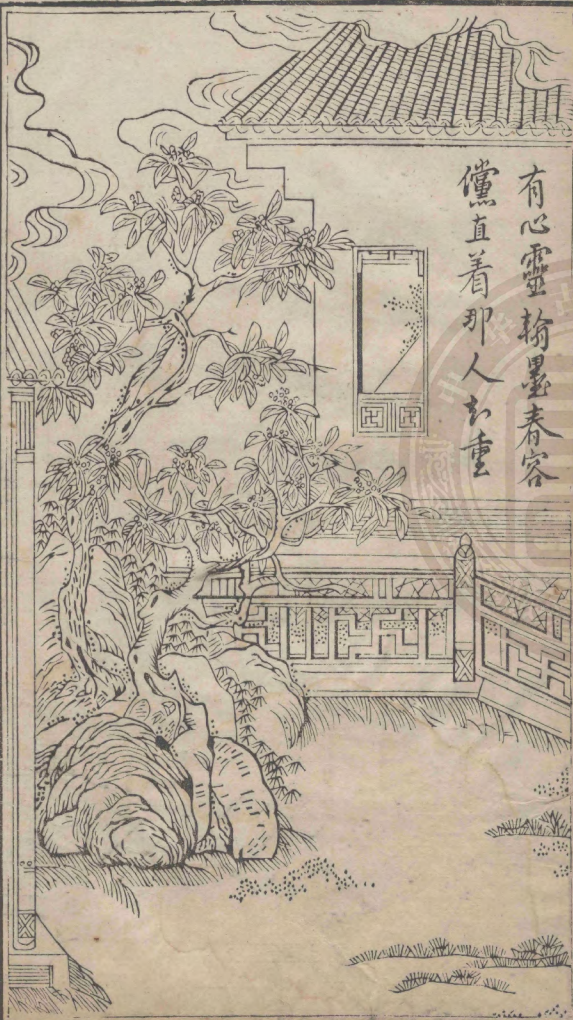 有心靈翰墨春容
儻直着那人知重